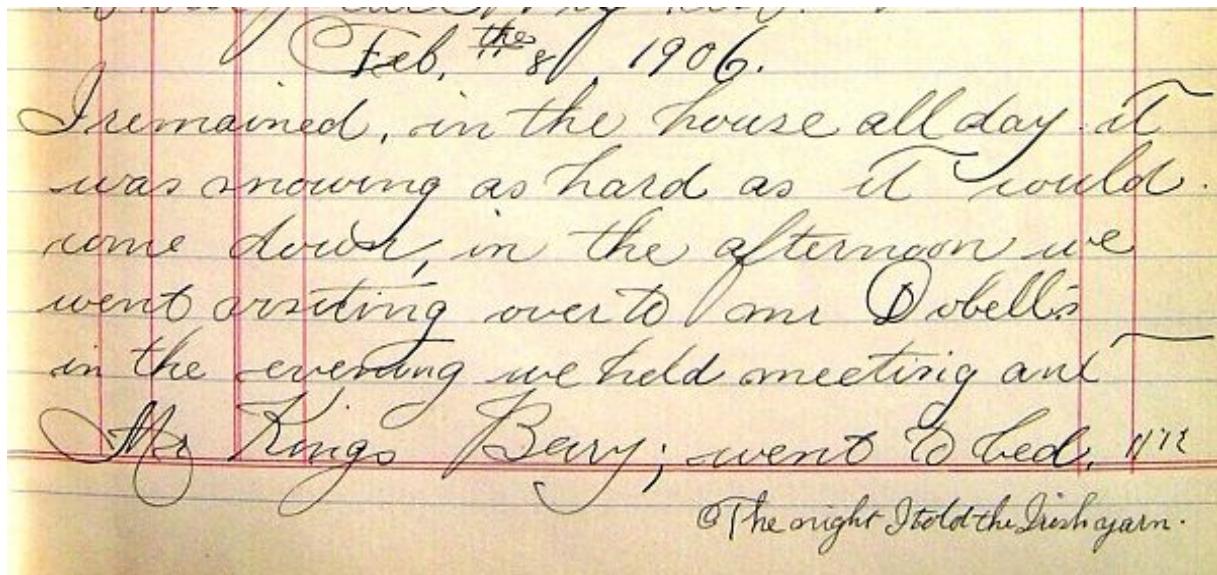 Feb. the 8, 1906.
I remained, in the house all day. it
was snowing as hard as it could.
come down, in the afternoon we
went visiting over to mr Dobell's
in the evening we held meeting and
Mr Kings Berry; went to bed.
The night I told the Irish yarn.